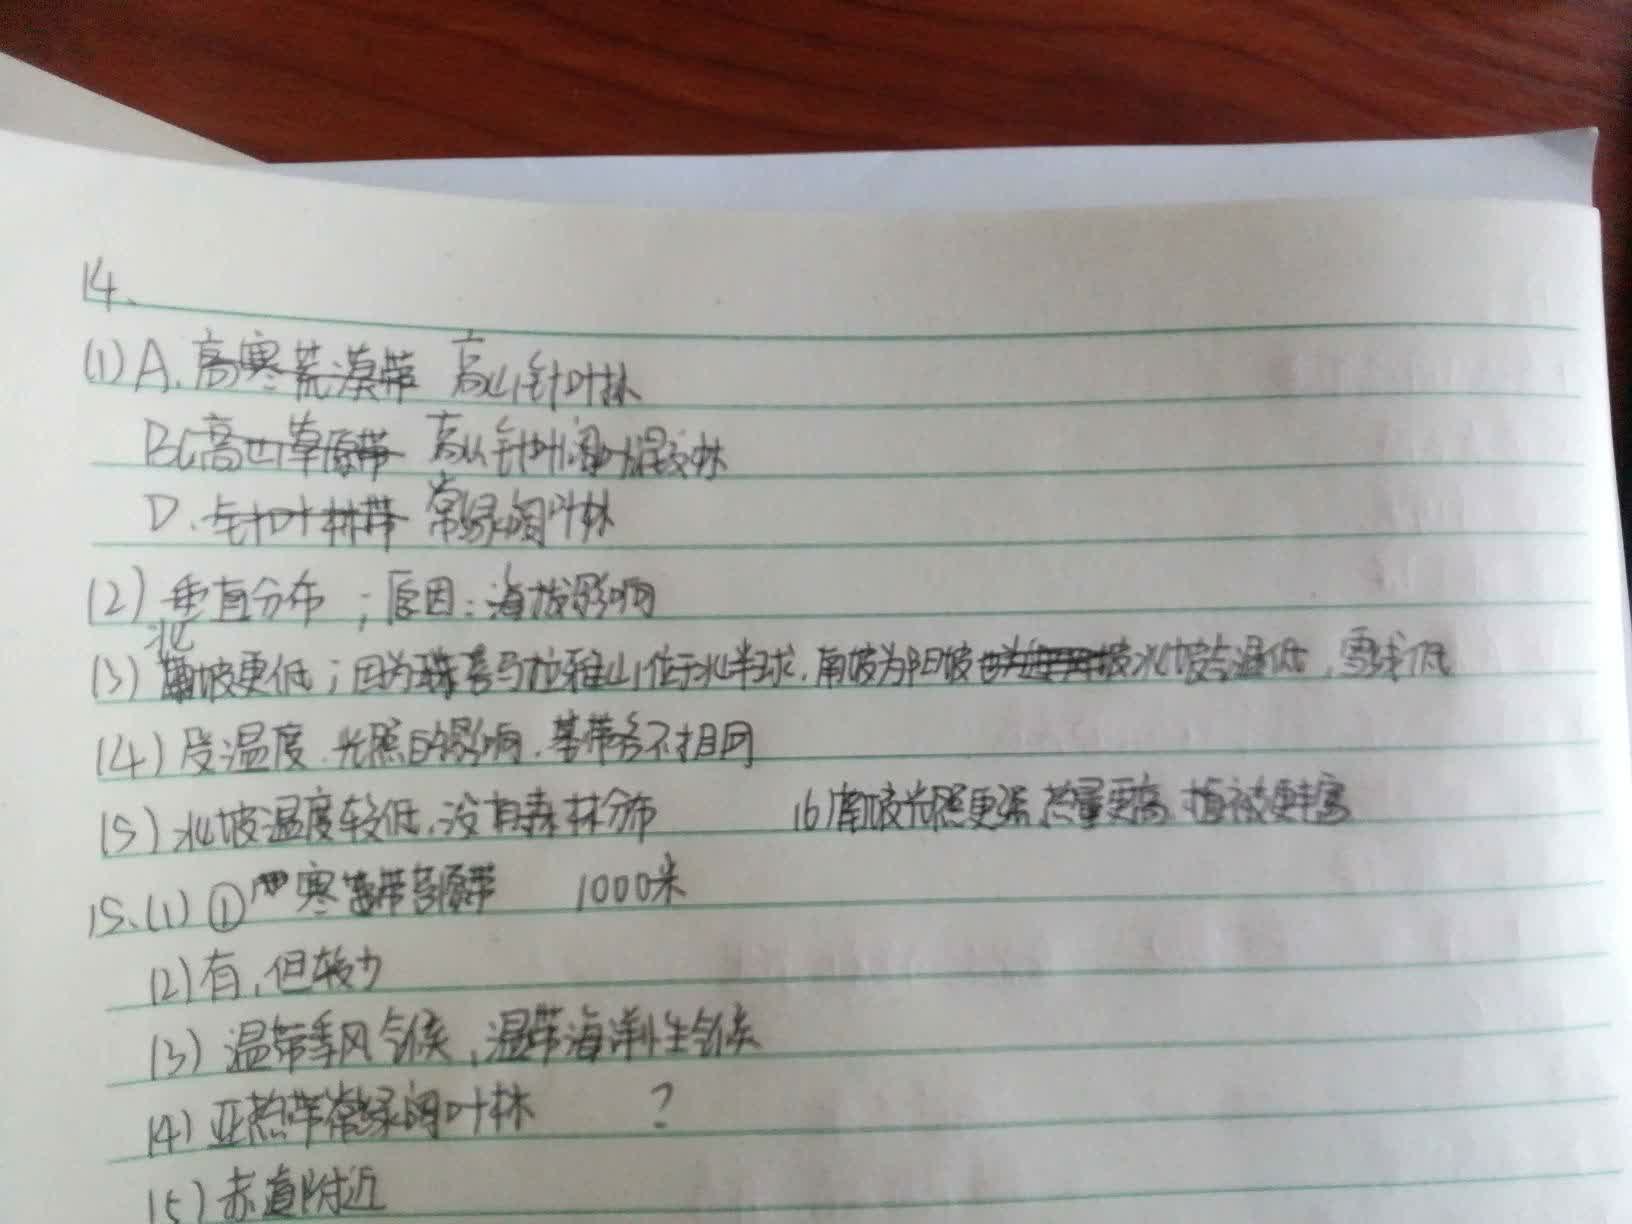 14、
(1) A. 高寒荒漠带 高山针叶林
BC 高山草原带 高山针叶阔叶混交林
D. 针叶林带 常绿阔叶林
(2) 垂直分布 ; 原因: 海拔影响
(3) 北坡更低 ; 因为喜马拉雅山位于北半球, 南坡为阳坡 北坡气温低, 雪线低
(4) 受温度、光照的影响, 基带各不相同
(5) 北坡温度较低, 没有森林分布 (6) 南坡光照更强, 热量更高, 植被更丰富
15、(1) ① 寒带草原带 1000米
(2) 有, 但较少
(3) 温带季风气候, 温带海洋性气候
(4) 亚热带常绿阔叶林 ?
(5) 赤道附近